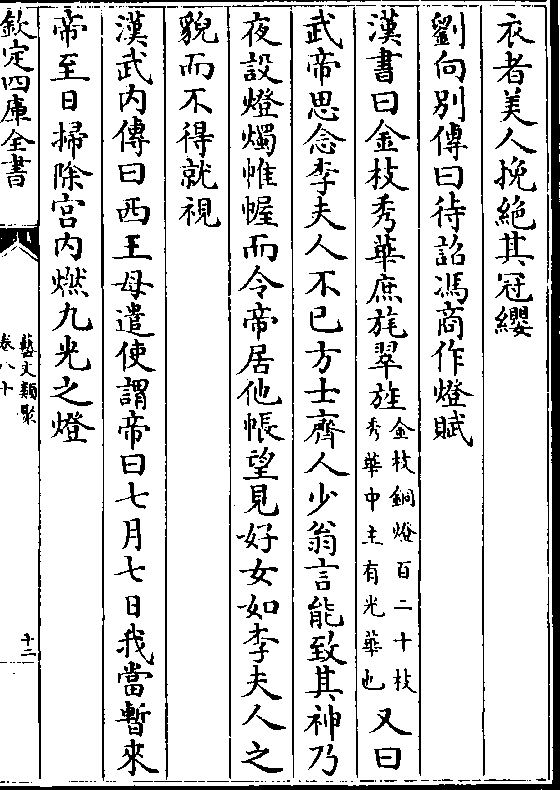 衣者美人挽絶其冠纓
劉向别傳曰待詔馮商作燈賦
漢書曰金枝秀華庶旄翠旌金枝銅燈百二十枝秀華中主有光華也又曰
武帝思念李夫人不已方士齊人少翁言能致其神乃
夜設燈燭帷幄而令帝居他帳望見好女如李夫人之
貌而不得就視
漢武内傳曰西王母遣使謂帝曰七月七日我當暫來
帝至日掃除宫内燃九光之燈
欽定四庫全書
藝文類聚
卷八十
十二